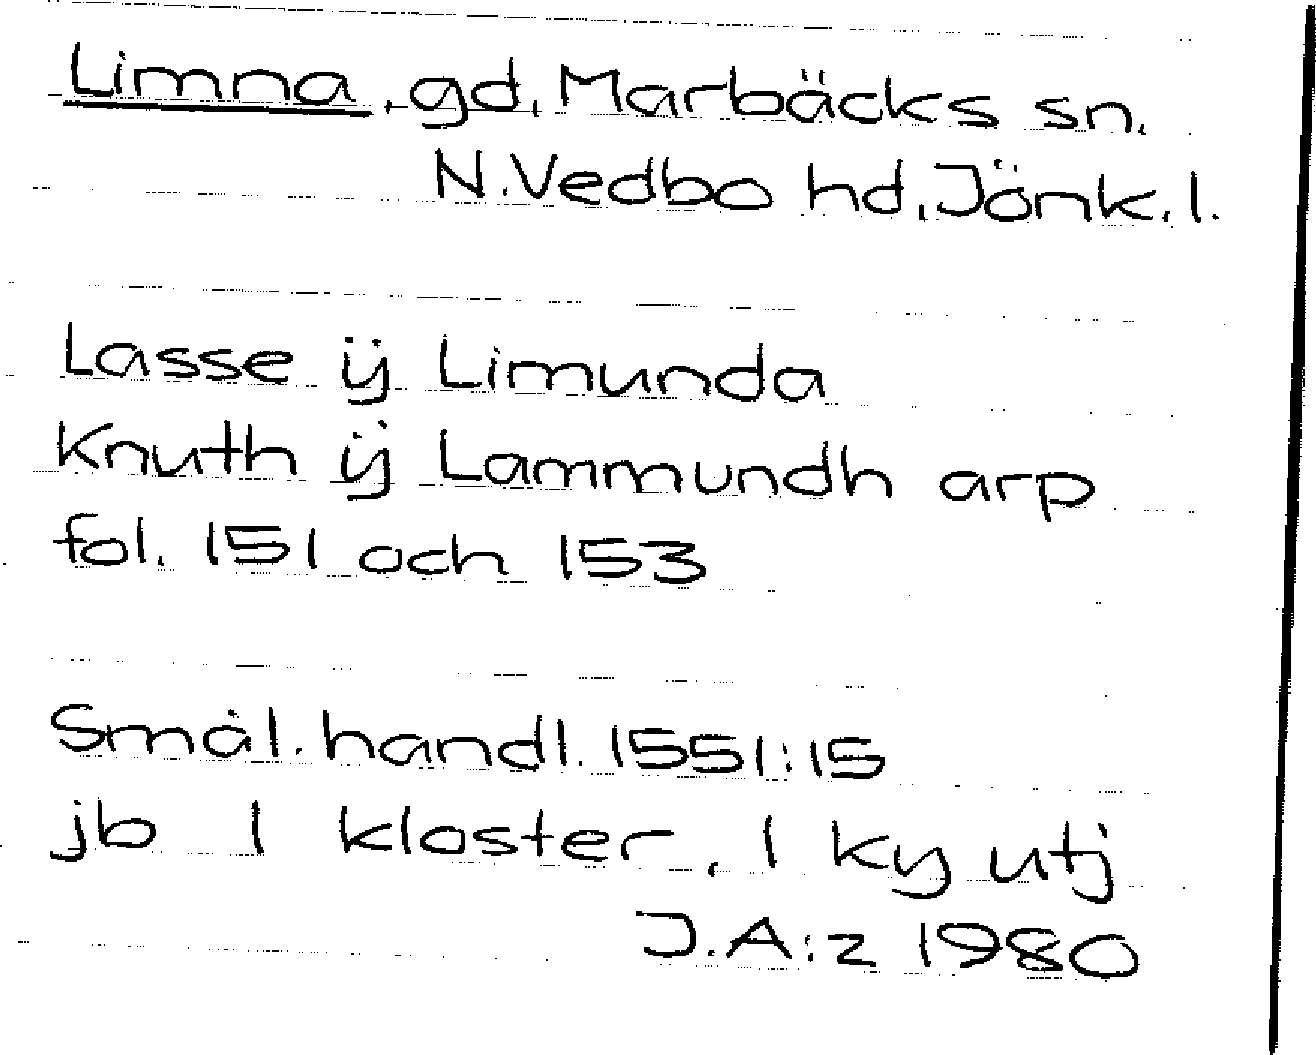 Limna, gd, Marbäcks sn.
N.Vedbo hd, Jönk. l.
Lasse ÿ Limunda
Knuth ÿ Lammundh arp
fol. 151 och 153
Smål. handl. 1551:15
jb 1 kloster, 1 ky utj
J.A:z 1980